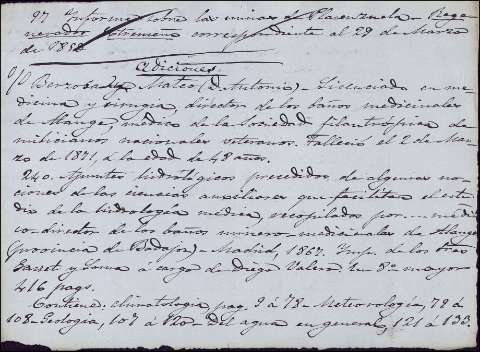 97 Informe sobre las minas de Plasenzuela - Rege-
nerador Extremeño correspondiente al 29 de Marzo
de 1852
Adiciones.
Berzobadge Mateo (D. Antonio) - Licenciado en me-
dicina y cirugia, director de los baños medicinales
de Alange, medico de la Sociedad filantropica de
milicianos nacionales veteranos. Falleció el 2 de Mar-
zo de 1871, á la edad de 48 años.
240. Apuntes hidrológicos precedidos de algunas no-
ciones de las ciencias auxiliares que facilitan el estu-
dio de la hidrologia médica, recopilados por ... medi-
co-director de los baños minero-medicinales de Alange
(provincia de Badajoz) - Madrid, 1867. Imp. de los Sres
Gasset y Loma á cargo de Diego Valero En 8º mayor
416 pags.
Contiene: climatologia pag. 9 á 78 - Meteorologia, 79 á
108 - Geologia, 107 á 120 - Del agua en general, 121 á 133.